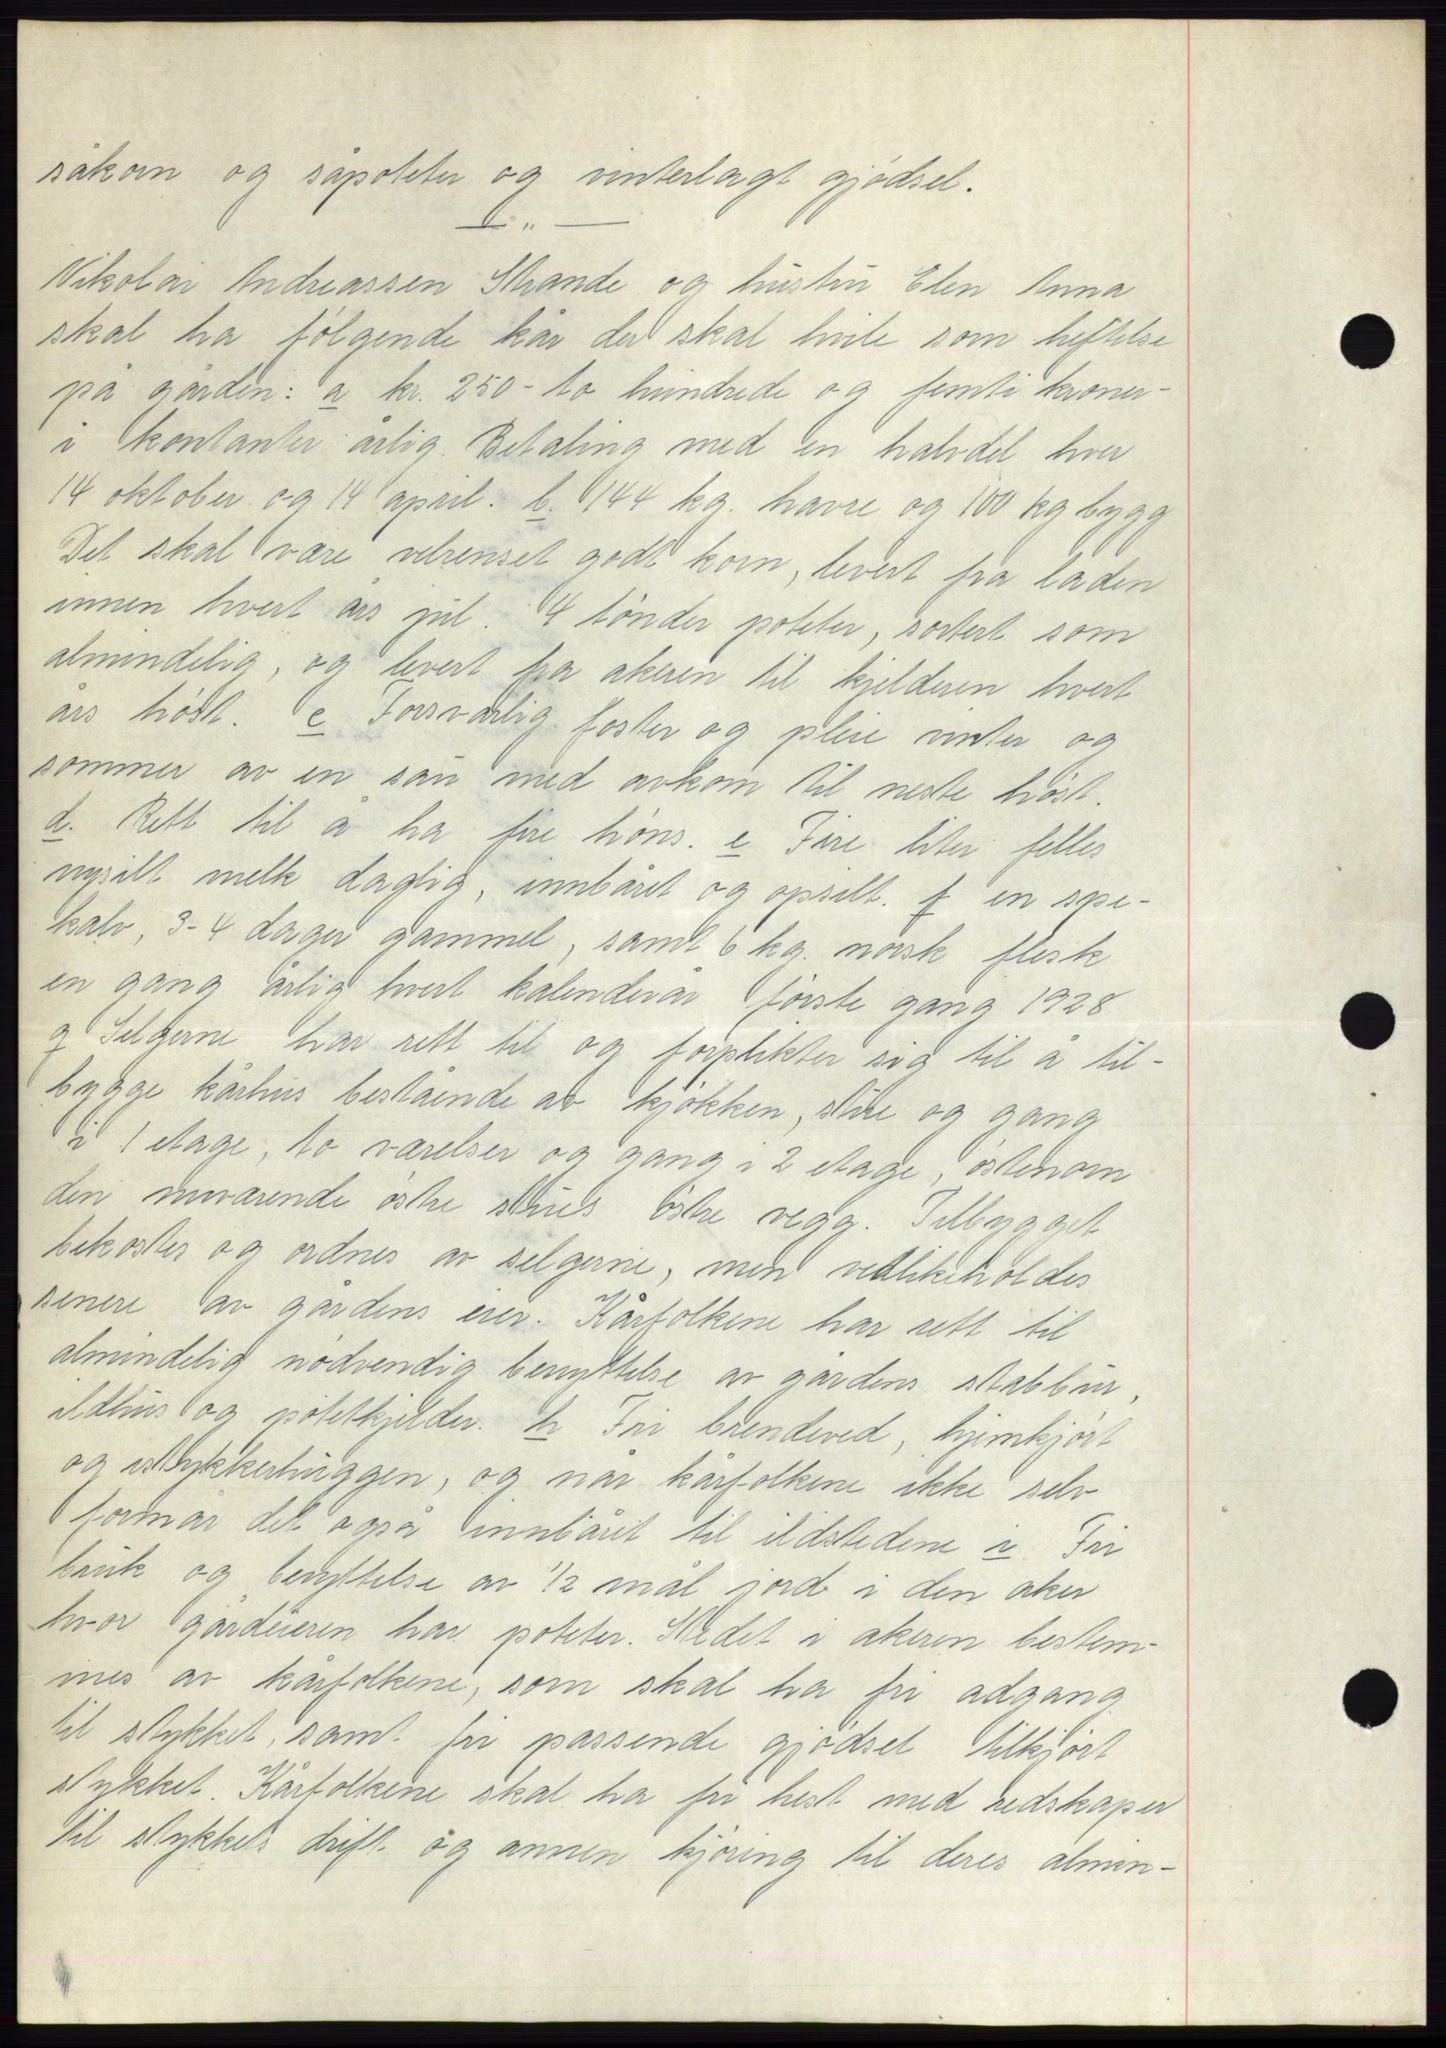 såkorn og såpoteter og vinterlagt gjødsel.
— " —
Nikolai Andreassen Strande og hustru Elen Anna
skal ha følgende kår der skal hvile som heftelse
på gården: a kr. 250- to hundrede og femti kroner-
i kontanter årlig. Betaling med en halvdel hver
14 oktober og 14 april. b. 144 kg. havre og 100 kg bygg
Det skal være velrenset godt korn, levert fra laden
innen hvert års jul. 4 tønder poteter, sortert som
almindelig, og levert fra akeren til kjelderen hvert
års høst. c Forsvarlig foster og pleie vinter og
sommer av en sau med avkom til neste høst.
d. Rett til å ha fire høns. e Fire liter felles
nysilt melk daglig, innbåret og opsilt. f en spe-
kalv, 3-4 dager gammel, samt 6 kg. norsk flesk
en gang årlig hvert kalenderår første gang 1928
g Selgerne har rett til og forplikter sig til å til-
bygge kårhus bestående av kjøkken, stue og gang
i 1 etage, to værelser og gang i 2 etage, østenom
den nuværende østre stues østre vegg. Tilbygget
bekostes og ordnes av selgerne, men vedlikeholdes
senere av gårdens eier. Kårfolkene har rett til
almindelig nødvendig benyttelse av gårdens stabbur,
ildhus og potetkjelder. h Fri brendeved, hjemkjørt
og istykkerhuggen, og når kårfolkene ikke selv
formår det også innbåret til ildstedene i Fri
bruk og benyttelse av 1/2 mål jord i den aker
hvor gårdeieren har poteter. Stedet i akeren bestem-
mes av kårfolkene, som skal ha fri adgang
til stykket, samt fri passende gjødsel tilkjørt
stykket. Kårfolkene skal ha fri hest med redskaper
til stykkets drift og annen kjøring til deres almin-